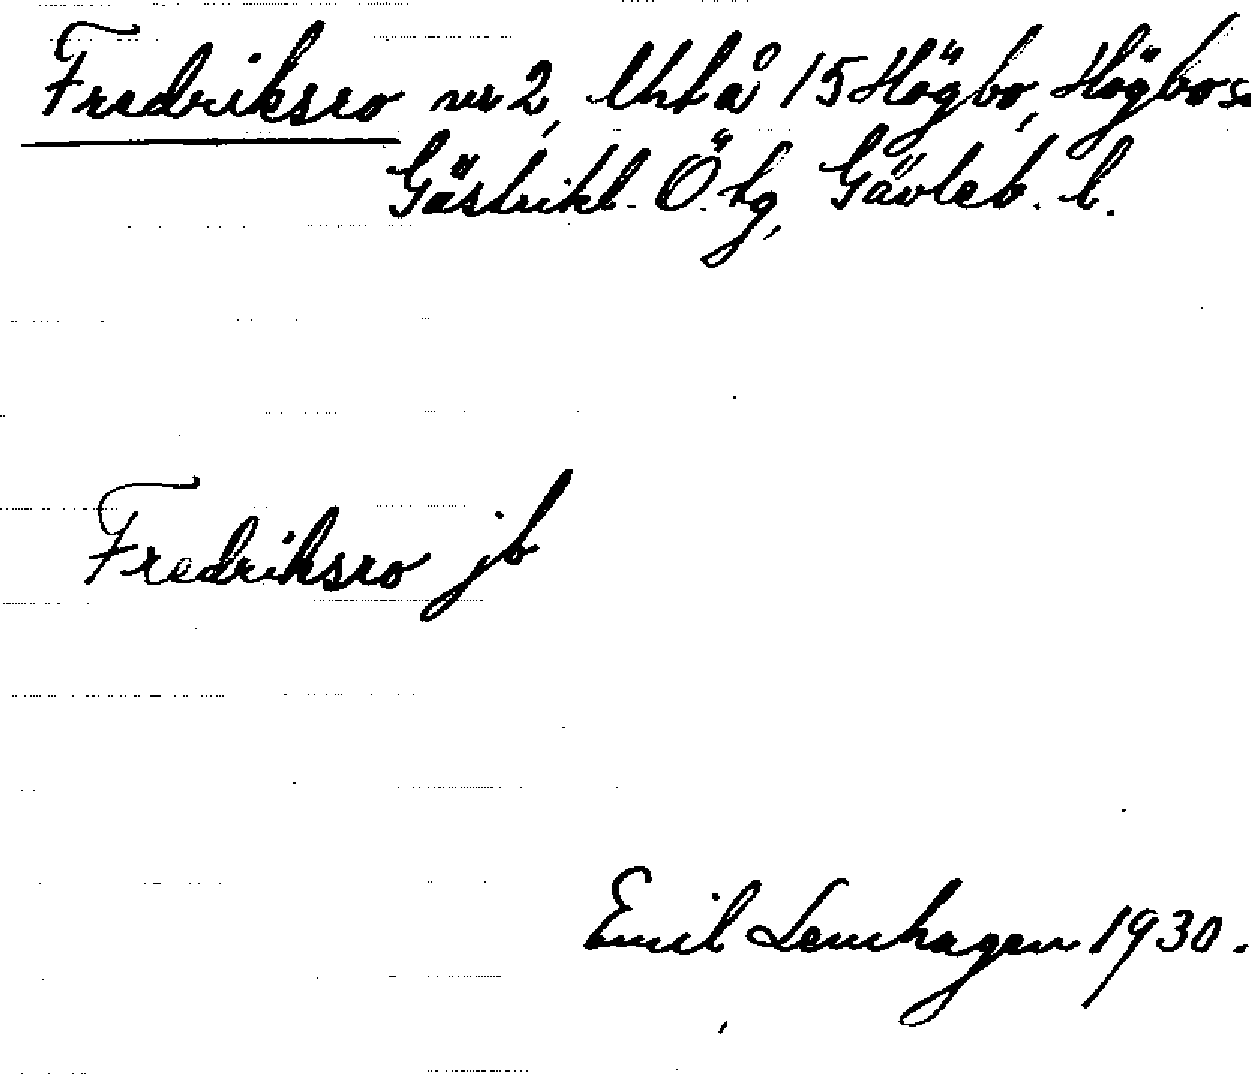 Fredriksro nr 2, Utnå 15 Högbo, Högbo s
Gästrikl. Ö. tg, Gävleb. l.
Fredriksro jb
Emil Lemhagen 1930.